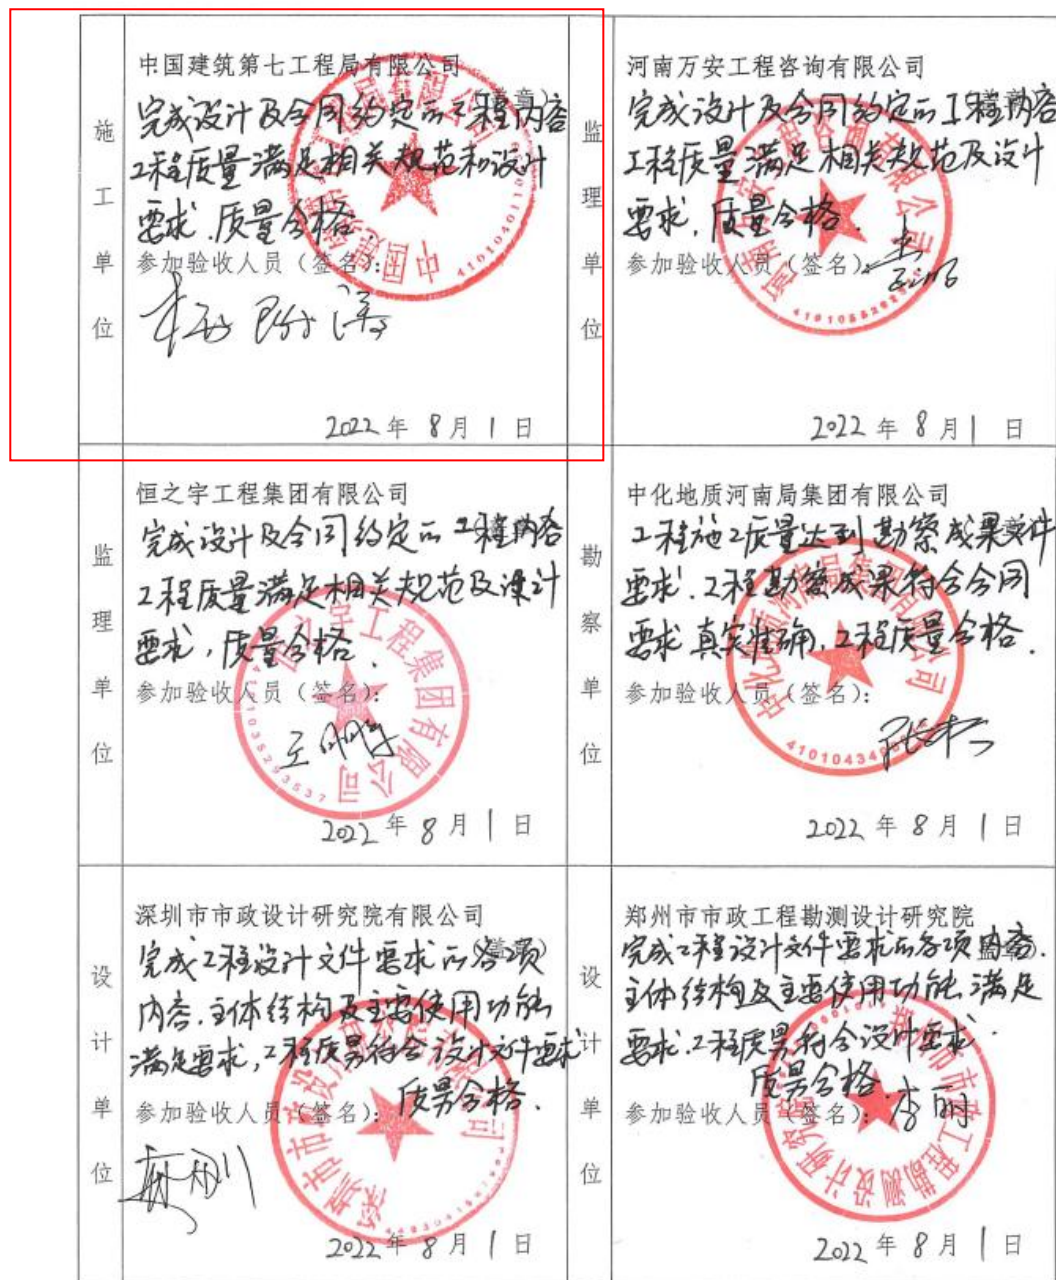 施工单位
中国建筑第七工程局有限公司
(盖章)
完成设计及合同约定的工程内容
工程质量满足相关规范和设计
要求.质量合格.
参加验收人员（签名）：
2022年8月1日
监理单位
河南万安工程咨询有限公司
(盖章)
完成设计及合同约定的工程内容
工程质量满足相关规范及设计
要求,质量合格.
参加验收人员（签名）：
2022年8月1日
监理单位
恒之宇工程集团有限公司
完成设计及合同约定的工程内容
工程质量满足相关规范及设计
要求,质量合格.
参加验收人员（签名）：
王鹏
2022年8月1日
勘察单位
中化地质河南局集团有限公司
工程施工质量达到勘察成果文件
要求.工程勘察成果符合合同
要求真实准确,工程质量合格.
参加验收人员（签名）：
2022年8月1日
设计单位
深圳市市政设计研究院有限公司
(盖章)
完成工程设计文件要求的各项
内容.主体结构及主要使用功能
满足要求,工程质量符合设计文件要求
质量合格.
参加验收人员（签名）：
2022年8月1日
设计单位
郑州市市政工程勘测设计研究院
(盖章)
完成工程设计文件要求的各项内容.
主体结构及主要使用功能满足
要求.工程质量符合设计要求.
质量合格.
参加验收人员（签名）：
李丽
2022年8月1日
中国建筑第七工程局有限公司
河南万安工程咨询有限公司
恒之宇工程集团有限公司
4101035293537
中化地质河南局集团有限公司
深圳市市政设计研究院有限公司
郑州市市政工程勘测设计研究院